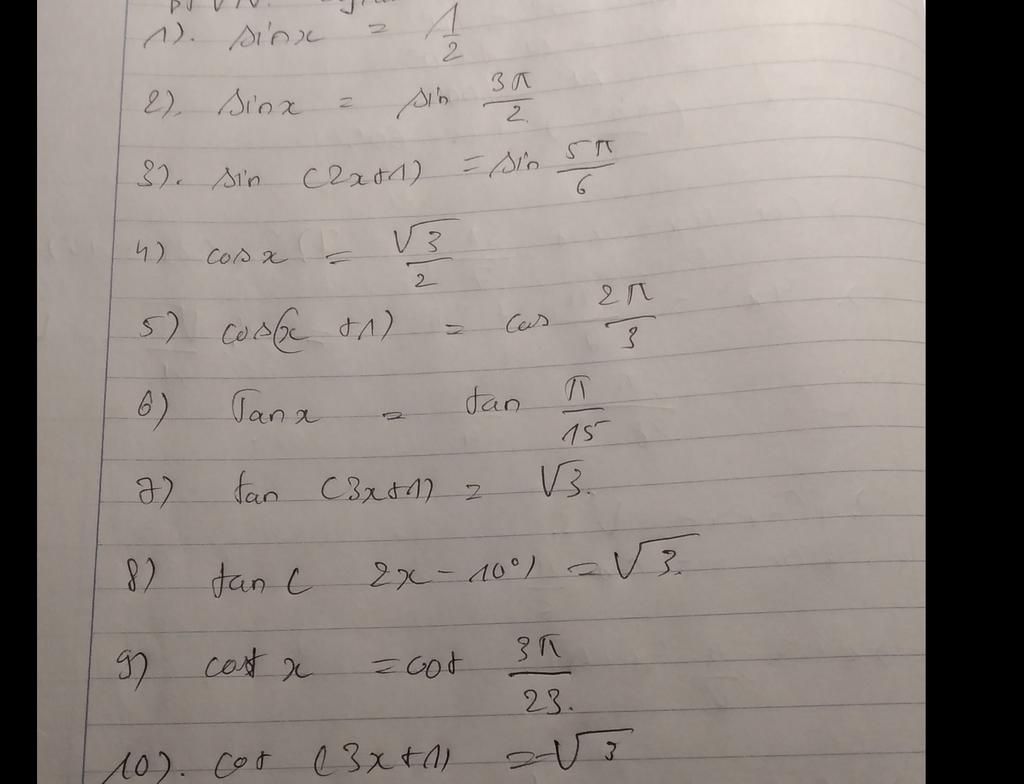 1). sinx = 1/2
2). sinx = sin 3π/2
3). sin (2x+1) = sin 5π/6
4) cosx = √3/2
5) cos(x +1) = cos 2π/3
6) Tanx = tan π/15
7) tan (3x+1) = √3.
8) tan ( 2x - 10°) = √3.
9) cot x = cot 3π/23.
10). cot (3x+1) = -√3